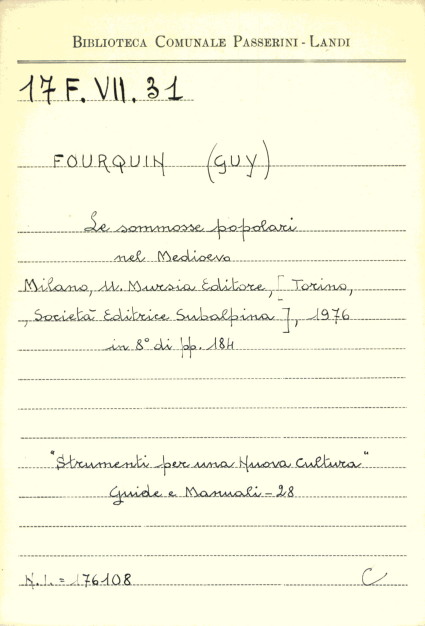 BIBLIOTECA COMUNALE PASSERINI - LANDI
17 F. VII. 31
FOURQUIN (GUY)
Le sommosse popolari
nel Medioevo
Milano, U. Mursia Editore, [Torino,
, Società Editrice Subalpina], 1976
in 8° di pp. 184
"Strumenti per una Nuova Cultura"
Guide e Manuali - 28
N. I. = 176108 C